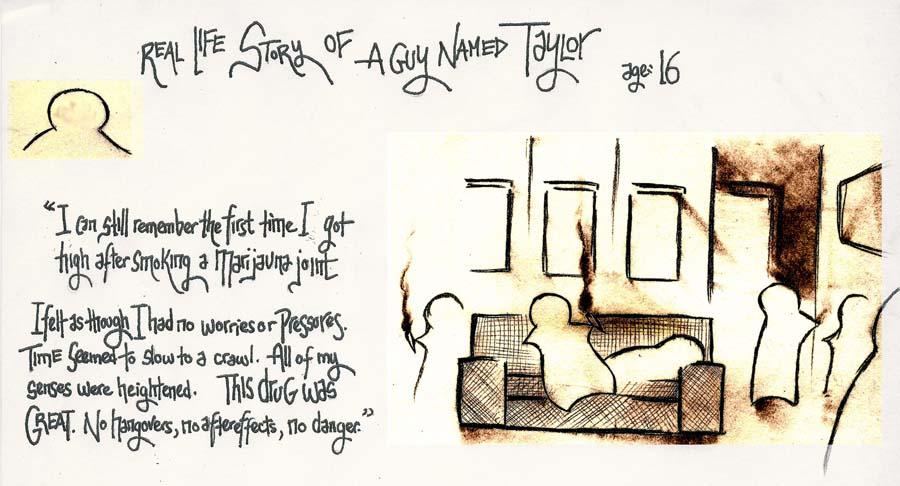 Real Life Story of A Guy Named Taylor
age: 16
"I can still remember the first time I got
high after smoking a Marijauna joint
I felt as though I had no worries or Pressures.
Time seemed to slow to a crawl. All of my
senses were heightened. This drug was
GREAT. No Hangovers, no aftereffects, no danger."